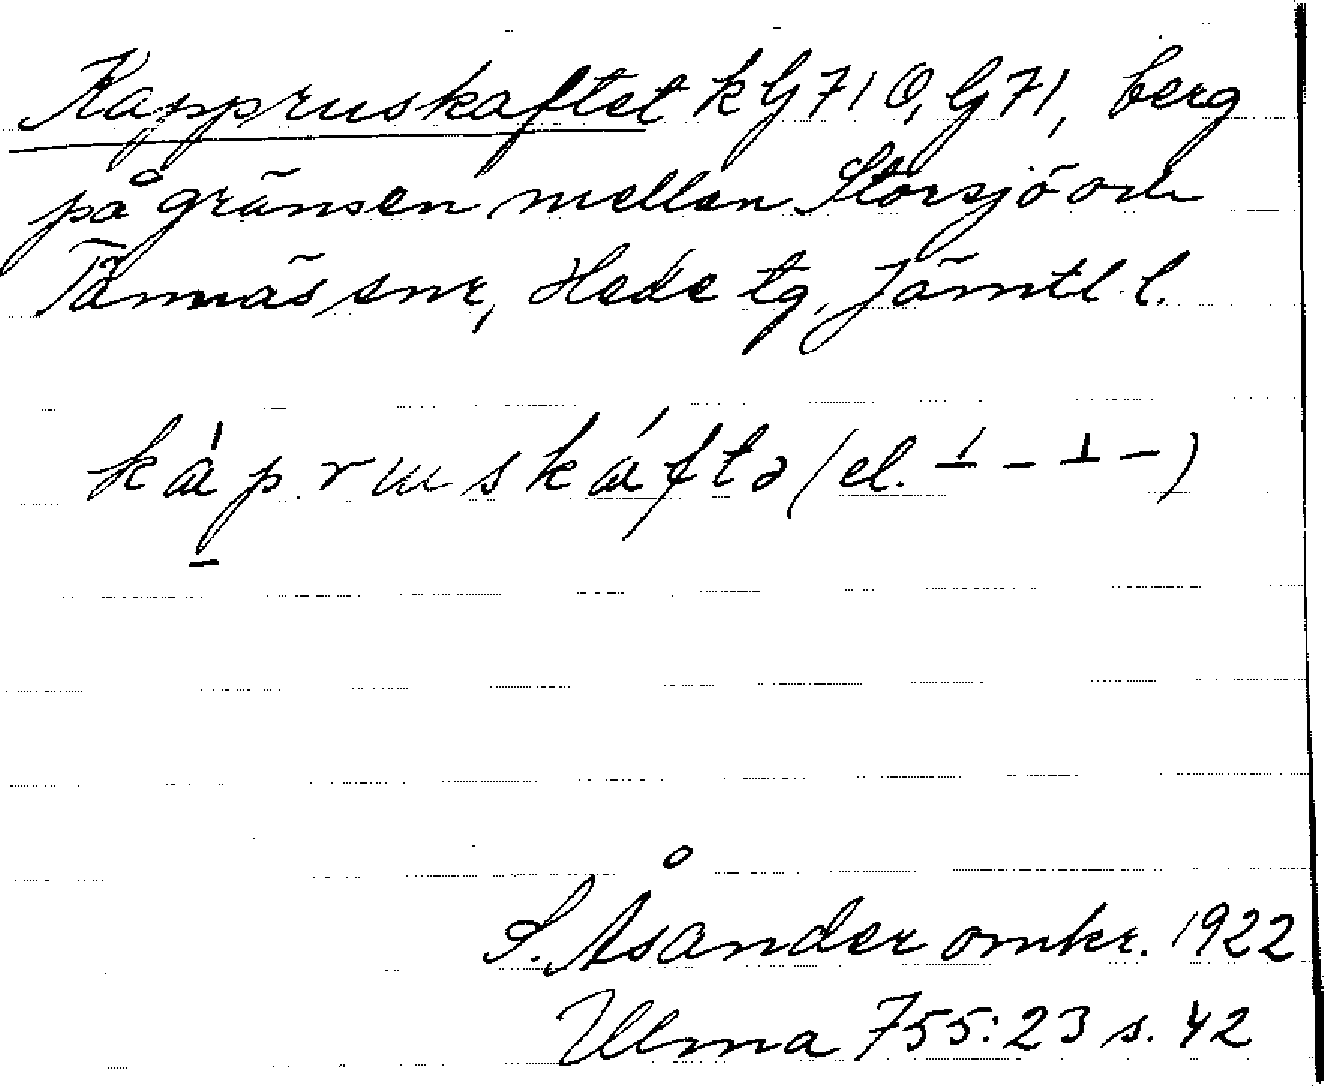 Kappruskaftet k G 71 O, G 71, berg
på gränsen mellan Storsjö och
Tännäs snr, Hede tg, Jämtl. l.
káp̱ruskáftə (el. ⊥ – ⊥ –)
S. Åsander omkr. 1922
Ulma 755:23 s. 42